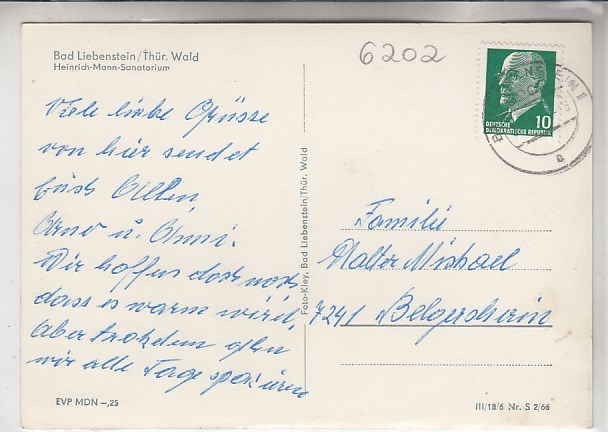 Bad Liebenstein/Thür. Wald
Heinrich-Mann-Sanatorium
6202
10
DEUTSCHE
DEMOKRATISCHE REPUBLIK
Viele liebe Grüsse
von hier sendet
Euch Allen
Arno u. Anni.
Wir hoffen doch noch
dass es warm wird,
Aber trotzdem gehen
wir alle Tage spazieren
Foto-Kley, Bad Liebenstein/Thür. Wald
Familie
Walter Michael
7241 Belgershein
EVP MDN –,25
III/18/6 Nr. S 2/66